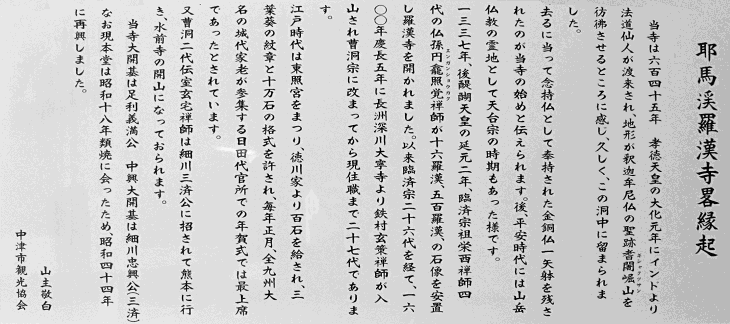 耶馬渓羅漢寺畧縁起
当寺は六百四十五年　孝徳天皇の大化元年にインドより
法道仙人が渡来され、地形が釈迦牟尼仏の聖跡耆闍崛山を
彷彿させるところに感じ、久しく、この洞中に留まられま
した。
去るに当って念持仏として奉持された金銅仏一矢躰を残さ
れたのが当寺の始めと伝えられます。後、平安時代には山岳
仏教の霊地として天台宗の時期もあった様です。
一三三七年、後醍醐天皇の延元二年、臨済宗祖栄西禅師四
代の仏孫円龕照覚禅師が十六羅漢、五百羅漢、の石像を安置
し羅漢寺を開かれました。以来臨済宗二十六代を経て、一六
〇〇年慶長五年に長洲深川大寧寺より鉄村玄策禅師が入
山され曹洞宗に改まってから現住職まで二十七代でありま
す。
江戸時代は東照宮をまつり、徳川家より百石を給され、三
葉葵の紋章と十万石の格式を許され、毎年正月、全九州大
名の城代家老が参集する日田代官所での年賀式では最上席
であったとされています。
又曹洞二代伝室玄宅禅師は細川三済公に招されて熊本に行
き、水前寺の開山になっておられます。
当寺大開基は足利義満公　中興大開基は細川忠興公(三済)
なお現本堂は昭和十八年類焼に会ったため、昭和四十四年
に再興しました。
山主敬白
中津市観光協会